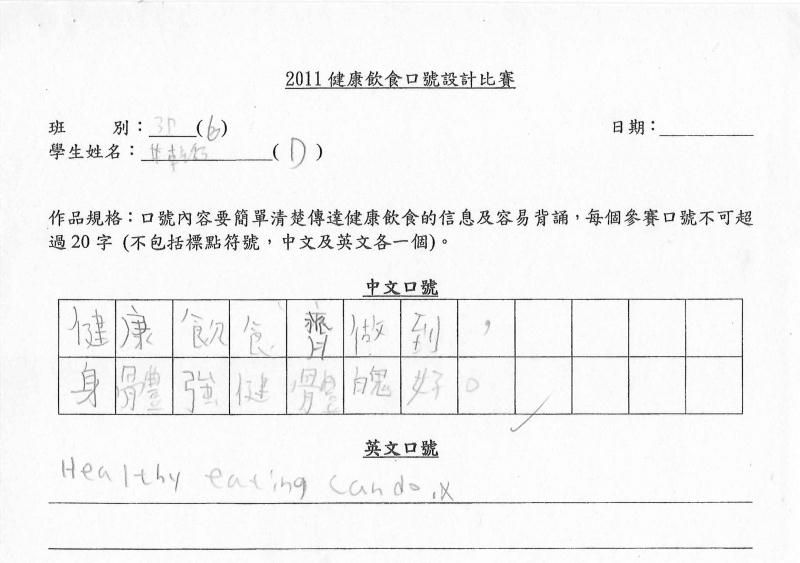 2011 健康飲食口號設計比賽
班 別：3D (6) 日期：
學生姓名： (D)
作品規格：口號內容要簡單清楚傳達健康飲食的信息及容易背誦，每個參賽口號不可超
過 20 字 (不包括標點符號，中文及英文各一個)。
中文口號
健康飲食齊做到，
身體強健體魄好。
英文口號
Healthy eating can do.